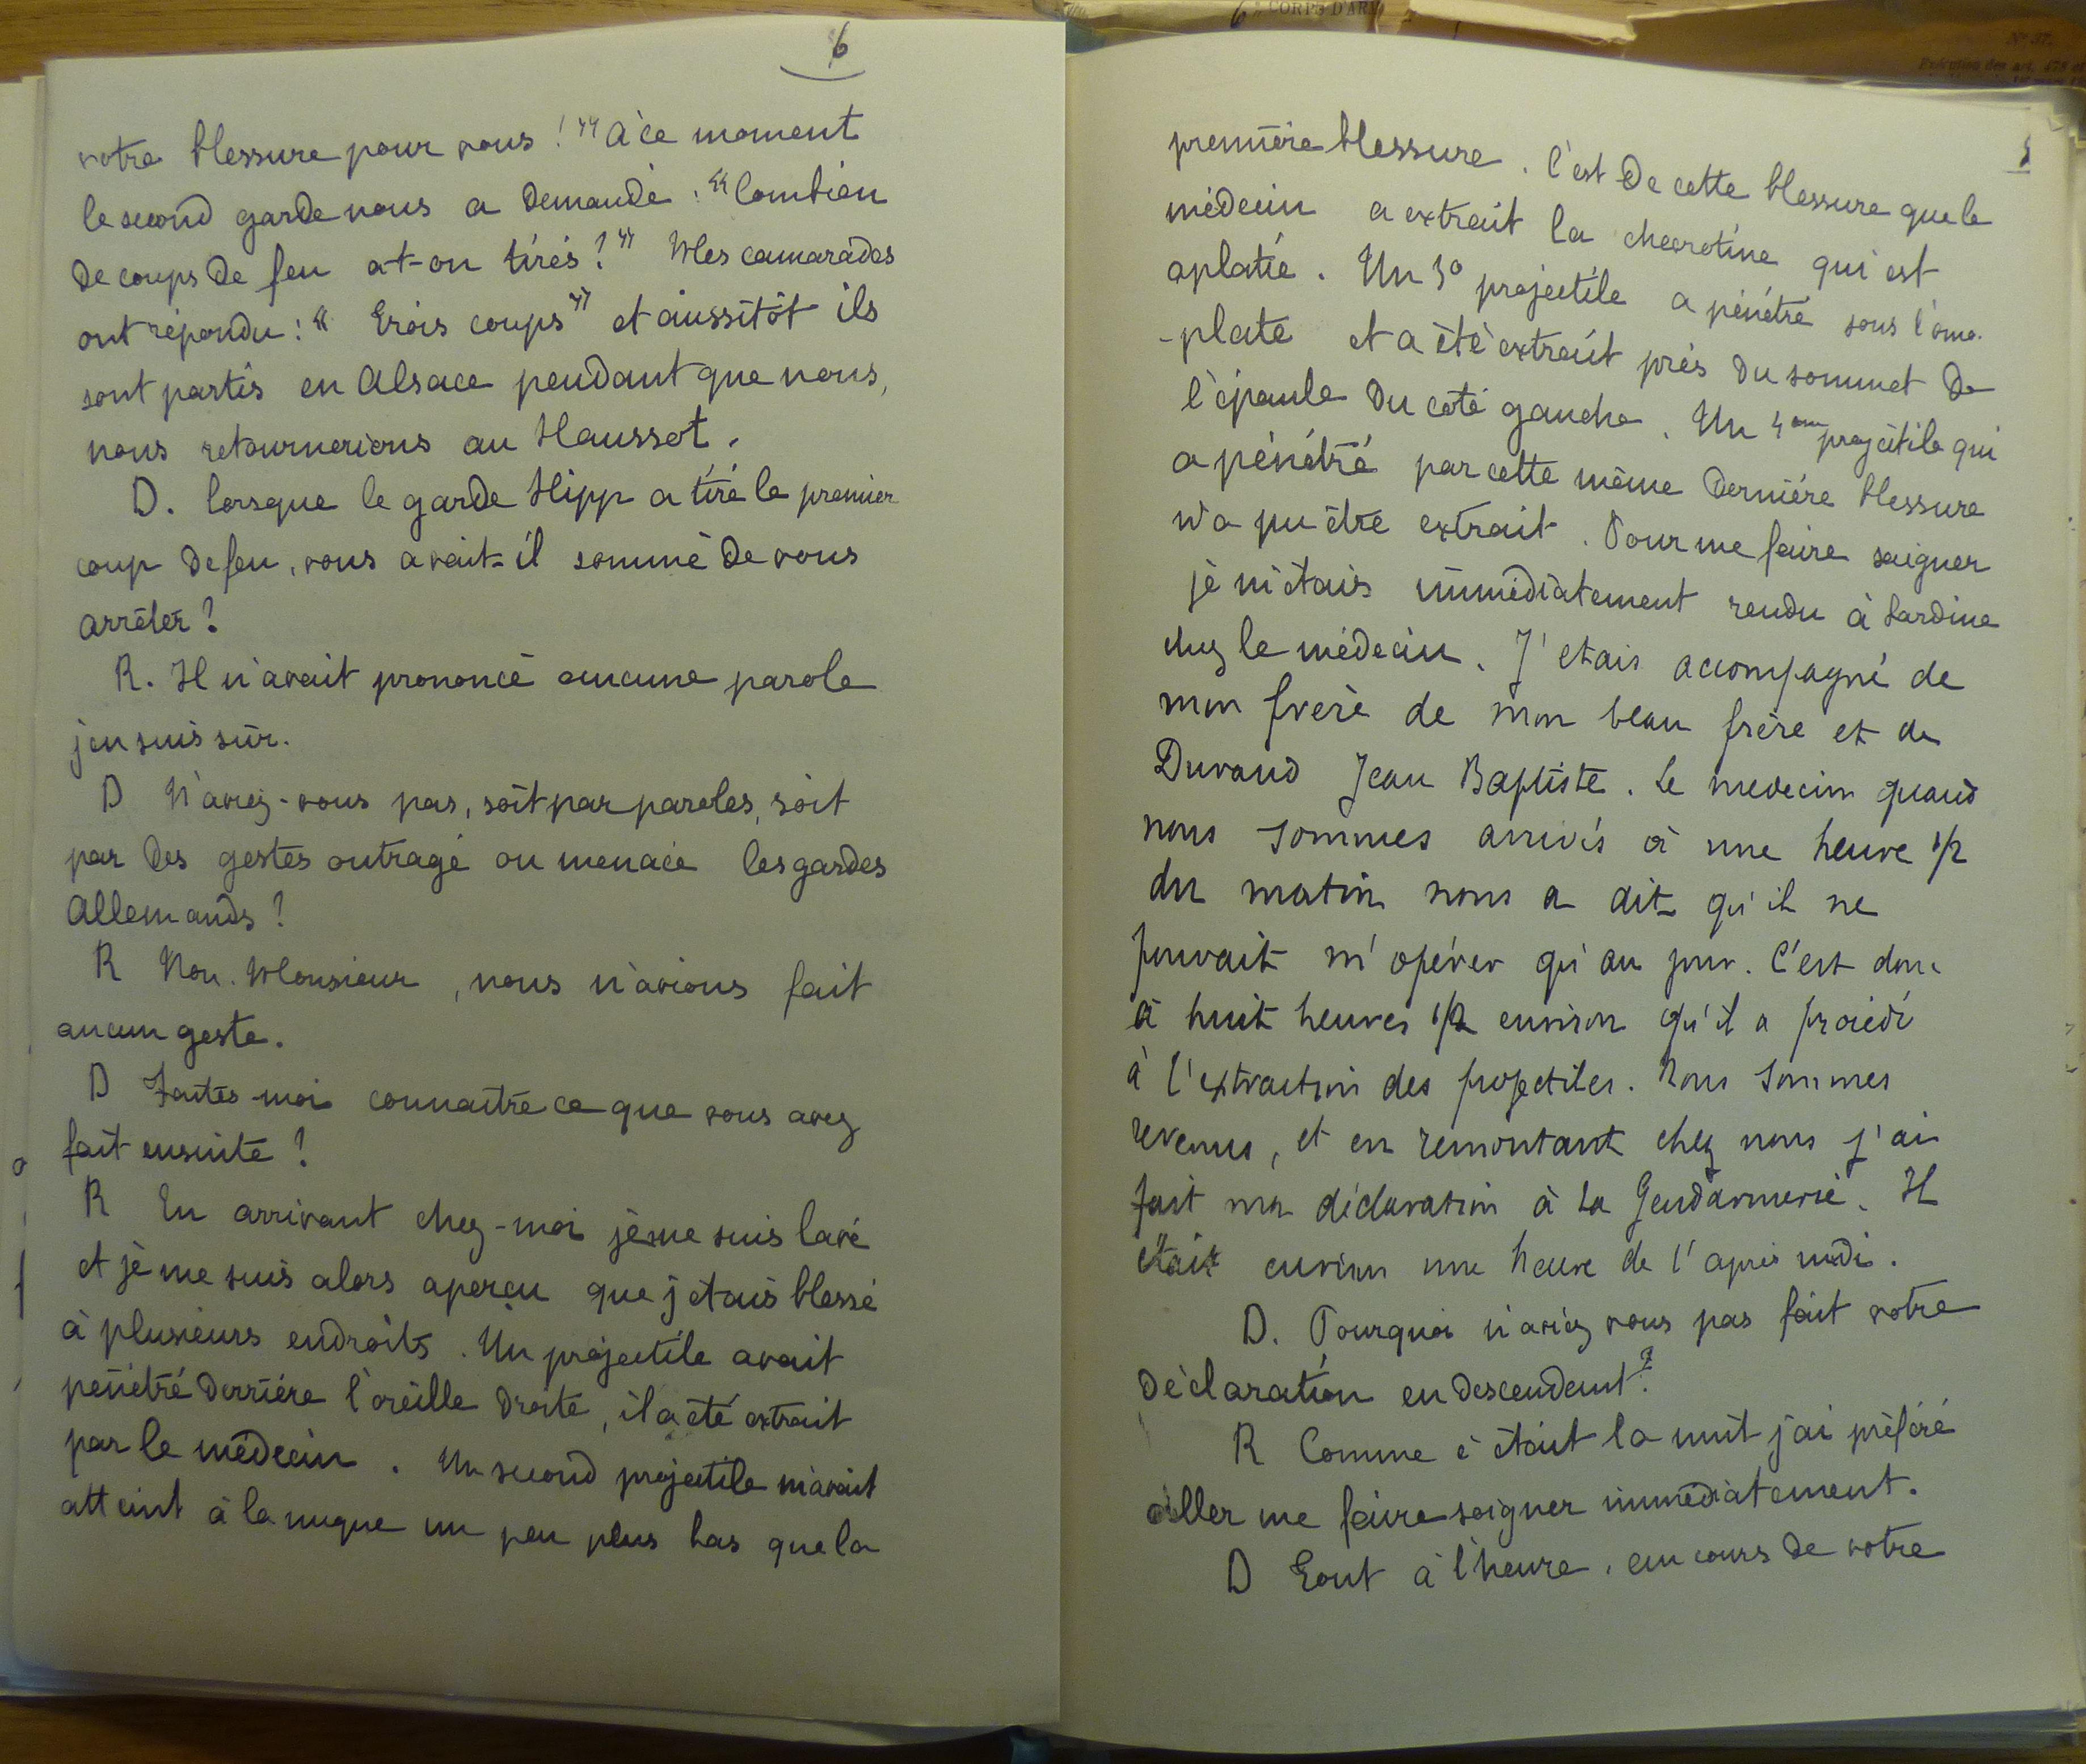 6
votre blessure pour vous !" A ce moment
le second garde nous a demandé : "Combien
de coups de feu a-t-on tirés ?" Mes camarades
ont répondu : "Trois coups" et aussitôt ils
sont partis en Alsace pendant que nous,
nous retournerions au Haussot.
D. Lorsque le garde Hipp a tiré le premier
coup de feu, vous avait-il sommé de vous
arrêter ?
R. Il n'avait prononcé aucune parole
j'en suis sûr.
D N'aviez-vous pas, soit par paroles, soit
par des gestes outragé ou menacé les gardes
Allemands ?
R Non. Monsieur, nous n'avions fait
aucun geste.
D Faites-moi connaître ce que vous avez
fait ensuite ?
R En arrivant chez-moi je me suis lavé
et je me suis alors aperçu que j'étais blessé
à plusieurs endroits. Un projectile avait
pénétré derrière l'oreille droite, il a été extrait
par le médecin. Un second projectile m'avait
atteint à la nuque un peu plus bas que la
CORPS D'ARM
N° 37.
première blessure. C'est de cette blessure que le
médecin a extrait la chevrotine qui est
aplatie. Un 3° projectile a pénétré sous l'omo-
-plate et a été extrait près du sommet de
l'épaule du côté gauche. Un 4eme projectile qui
a pénétré par cette même dernière blessure
n'a pu être extrait. Pour me faire soigner
je m'étais immédiatement rendu à Lardine
chez le médecin. J'etais accompagné de
mon frère de mon beau frère et de
Duvaud Jean Baptiste. Le medecin quand
nous sommes arrivés à une heure 1/2
du matin nous a dit qu'il ne
pouvait m'opérer qu'au jour. C'est donc
à huit heures 1/2 environ qu'il a procédé
à l'extraction des projectiles. Nous sommes
revenus, et en remontant chez nous j'ai
fait ma déclaration à la Gendarmerie. Il
était environ une heure de l'après midi.
D. Pourquoi n'aviez vous pas fait votre
déclaration en descendant ?
R Comme c'était la nuit j'ai préféré
aller me faire soigner immédiatement.
D Tout à l'heure, au cours de votre